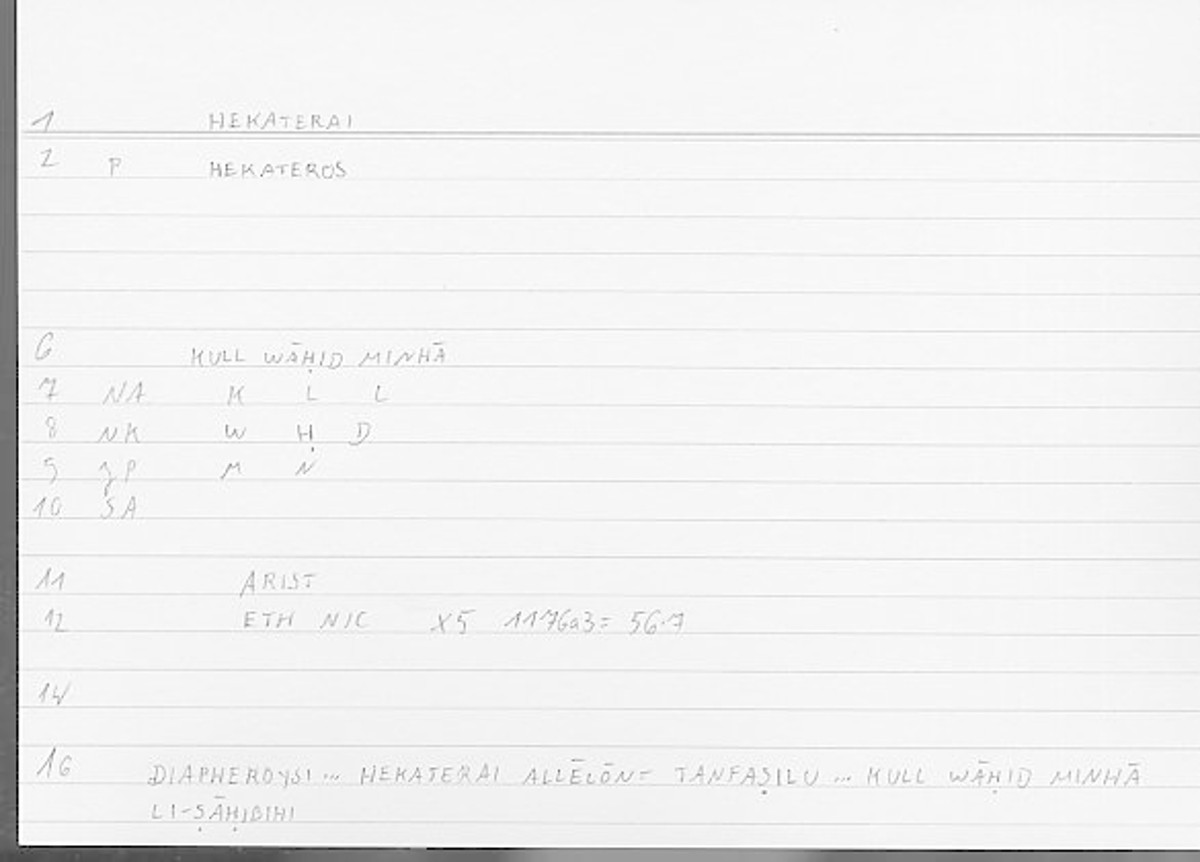 1 HEKATERAI
2 P HEKATEROS
6 KULL WĀḤID MINHĀ
7 NA K L L
8 NK W Ḥ D
9 ȝP M N
10 SA
11 ARIST
12 ETH NIC X5 1176a3= 56.7
14
16 DIAPHEROYSI... HEKATERAI ALLĒLŌN= TANFAṢILU ... KULL WĀḤID MINHĀ
LI-ṢĀḤIBIHI